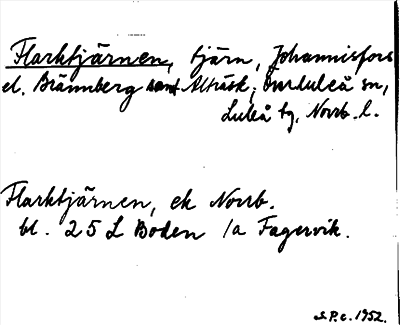 Flarktjärnen, tjärn, Johannisfors
el. Brännberg samt Alträsk, Överluleå sn,
Luleå tg, Norrb. l.
Flarktjärnen, ek Norrb.
bl. 25 L Boden 1a Fagervik.
S.P.c. 1952.